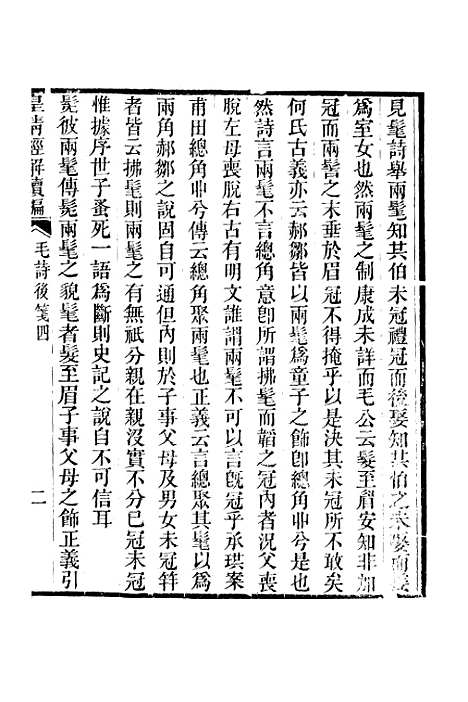 見髦詩舉兩髦知其伯未冠禮冠而後娶知其伯之未娶而
爲室女也然兩髦之制康成未詳而毛公云髮至眉安知非加
冠而兩髻之末垂於眉冠不得掩乎以是決其未冠所不敢矣
何氏古義亦云郝鄒皆以兩髦爲童子之飾卽總角
然詩言兩髦不言總角意卽所謂拂髦而韜之冠內者況父喪
脫左母喪脫右古有明文誰謂兩髦不可以言旣冠乎承珙案
甫田總角丱兮傳云總角聚兩髦也正義云言總聚其髦以爲
兩角郝鄒之說固自可通但內則於子事父母及男女未冠笄
者皆云拂髦則兩髦之有無祇分親在親沒實不分已冠未冠
惟據序世子蚤死一語爲斷則史記之說自不可信耳
髧彼兩髦傳髧兩髦之貌髦者髮至眉子事父母之飾正義引
皇淸經解續編
毛詩後箋四
二